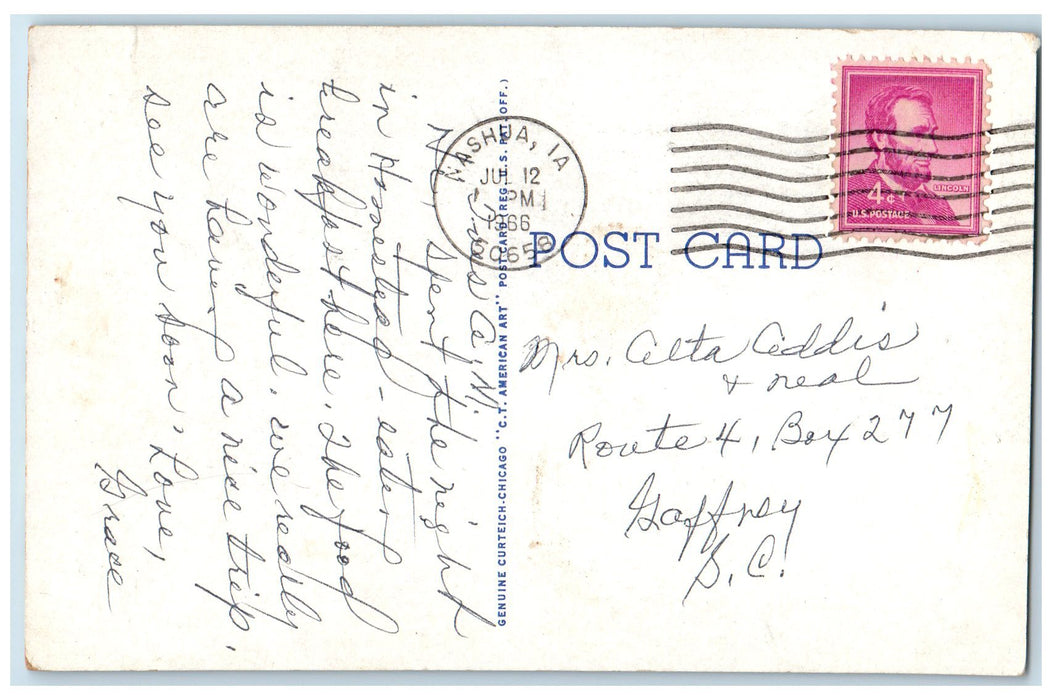 Dias A.M.
We, spent the night
in Homestead - eater
breakfast here. The food
is wonderful. We really
are having a nice trip.
see you soon. Love,
Grace
GENUINE CURTEICH-CHICAGO "C.T. AMERICAN ART" POST CARD (REG. U.S. PAT. OFF.)
NASHUA, IA
JUL 12
PM
1966
50658
LINCOLN
4¢
U.S. POSTAGE
POST CARD
Mrs. Alta Addis
+ neal
Route 4, Box 277
Gaffney
S.C.